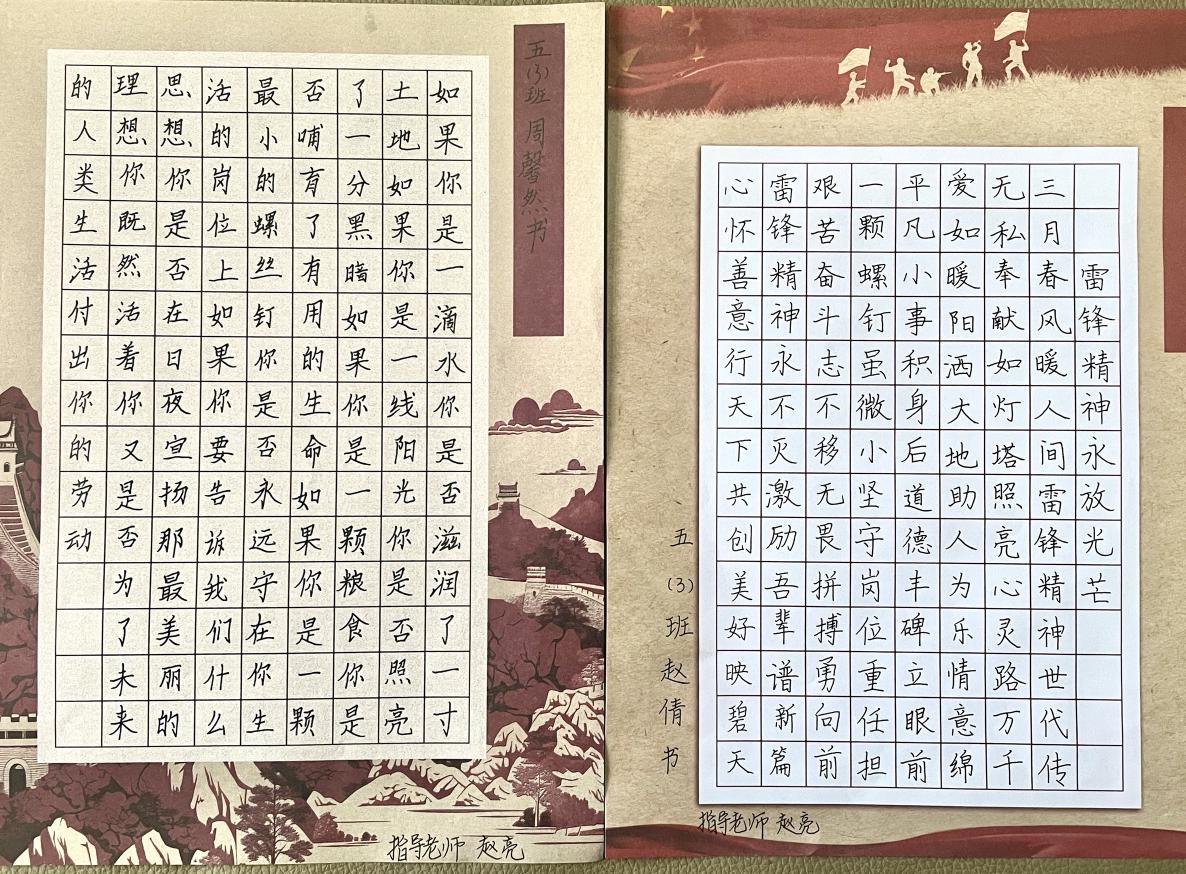 五(3)班 周馨然书
如果你是一滴水你是否滋润了一寸
土地如果你是一线阳光你是否照亮
了一分黑暗如果你是一颗粮食你是
否哺育了有用的生命如果你是一颗
最小的螺丝钉你是否永远守在你生
活的岗位上如果你要告诉我们什么
思想你是否在日夜宣扬那最美丽的
理想你既然活着你又是否为了未来
的人类生活付出你的劳动
指导老师 赵亮
雷锋精神永放光芒
三月春风暖人间雷锋精神世代传
无私奉献如灯塔照亮心灵路万千
爱如暖阳洒大地助人为乐情意绵
平凡小事积身后道德丰碑立眼前
一颗螺钉虽微小坚守岗位重任担
艰苦奋斗志不移无畏拼搏勇向前
雷锋精神永不灭激励吾辈谱新篇
心怀善意行天下共创美好映碧天
五(3)班赵倩书
指导老师 赵亮